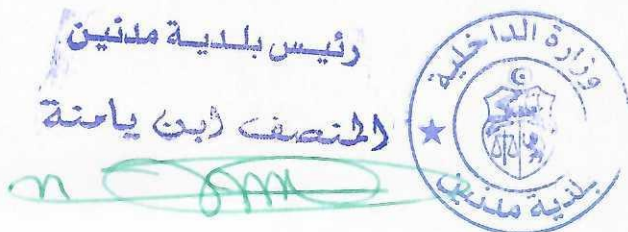 رئيس بلدية مدنين
المنصف ابن يامنة
وزارة الداخلية
بلدية مدنين